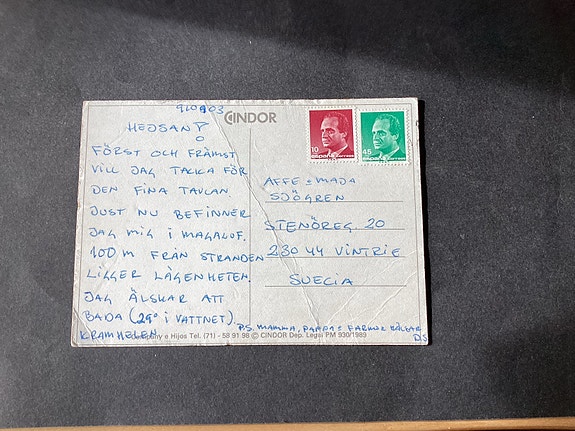 910903
CINDOR
HEJSAN!
FÖRST OCH FRÄMST
VILL JAG TACKA FÖR
DEN FINA TAVLAN
JUST NU BEFINNER
JAG MIG I MAGALUF.
100 M FRÅN STRANDEN
LIGGER LÄGENHETEN.
JAG ÄLSKAR ATT
BADA (29° I VATTNET).
KRAM HELEN
P.S. MAMMA, PAPPA & FARMOR HÄLSAR
D.S
10
españa correos
45
españa correos
AFFE & MAJA
SJÖGREN
STENÖREG 20
230 44 VINTRIE
SUECIA
y Hijos Tel. (71) - 58 91 98 © CINDOR Dep. Legal PM 930/1989